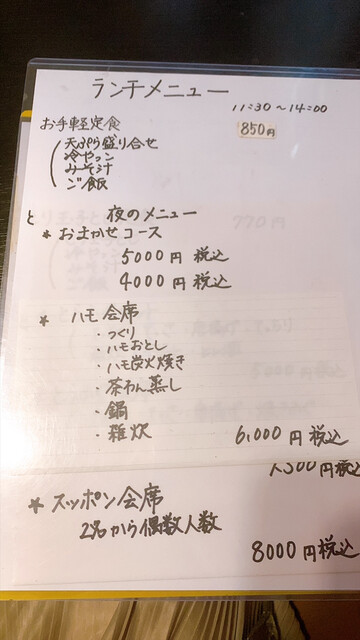 ランチメニュー
11:30～14:00
お手軽定食 850円
天ぷら盛り合せ
冷やっこ
みそ汁
ご飯
と 夜のメニュー
* おまかせコース
5000円 税込
4000円 税込
* ハモ会席
・つくり
・ハモおとし
・ハモ炭火焼き
・茶わん蒸し
・鍋
・雑炊 6,000円 税込
500円 税込
* スッポン会席
から偶数人数
8000円 税込